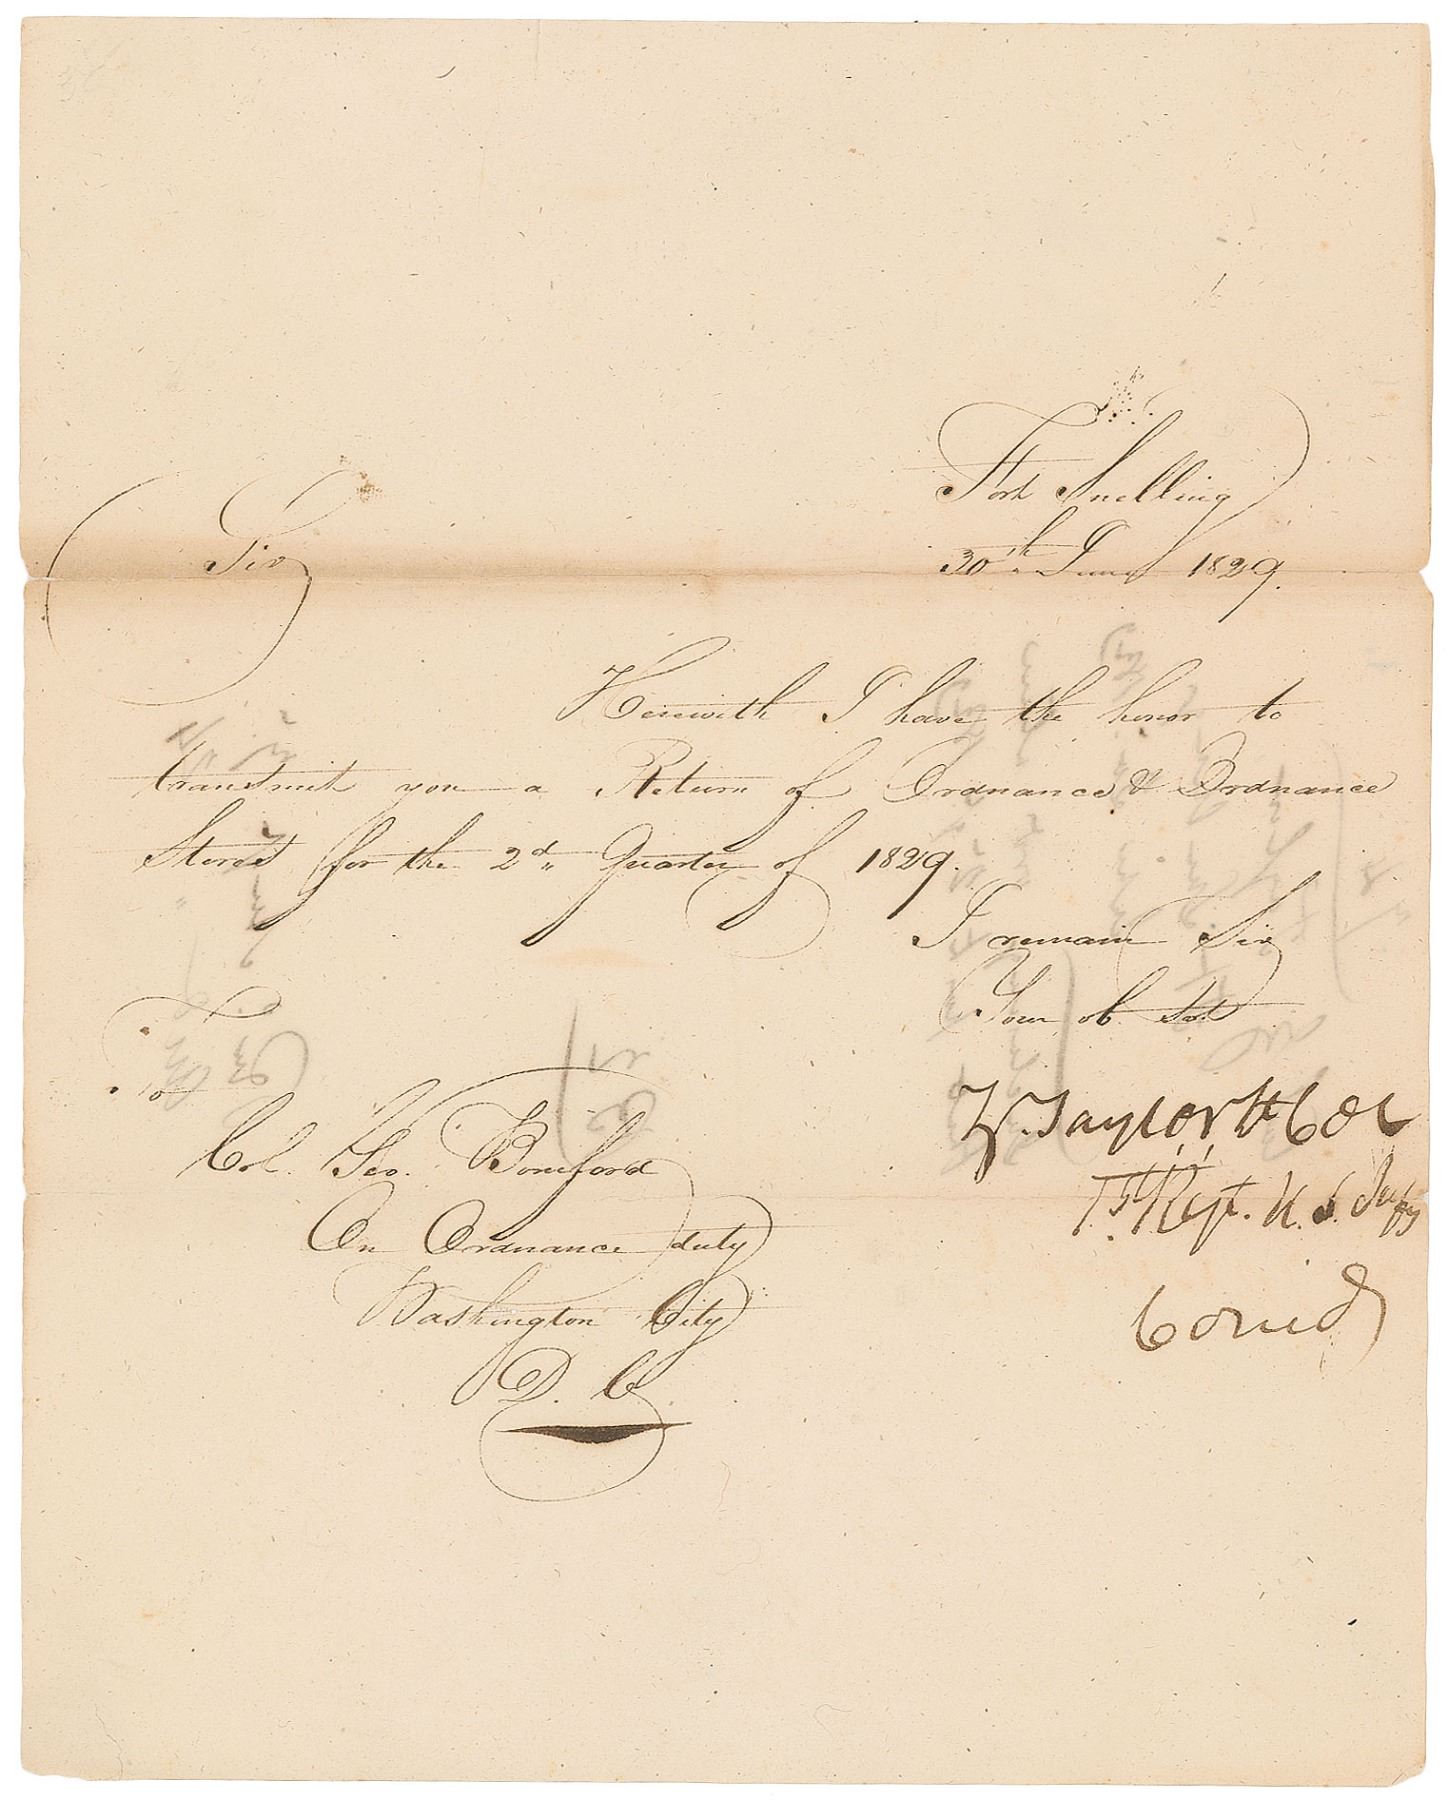 Fort Snelling
30th June 1829.
Sir
Herewith I have the honor to
transmit you a Return of Ordnance & Ordnance
Stores for the 2d Quarter of 1829.
I remain Sir
Your ob Sot
Z. Taylor Lt Col
1st Regt. U. S. Infy
Comdg
To
Col. Geo. Bomford
On Ordnance duty
Washington City
D. C.